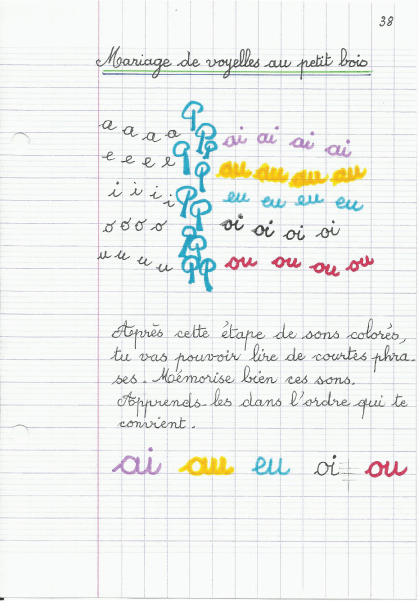 38
Mariage de voyelles au petit bois
a a a a ai ai ai ai
e e e e au au au au
i i i i eu eu eu eu
o o o o oi oi oi oi
u u u u ou ou ou ou
Après cette étape de sons colorés,
tu vas pouvoir lire de courtes phra-
ses. Mémorise bien ces sons.
Apprends-les dans l'ordre qui te
convient.
ai au eu oi ou